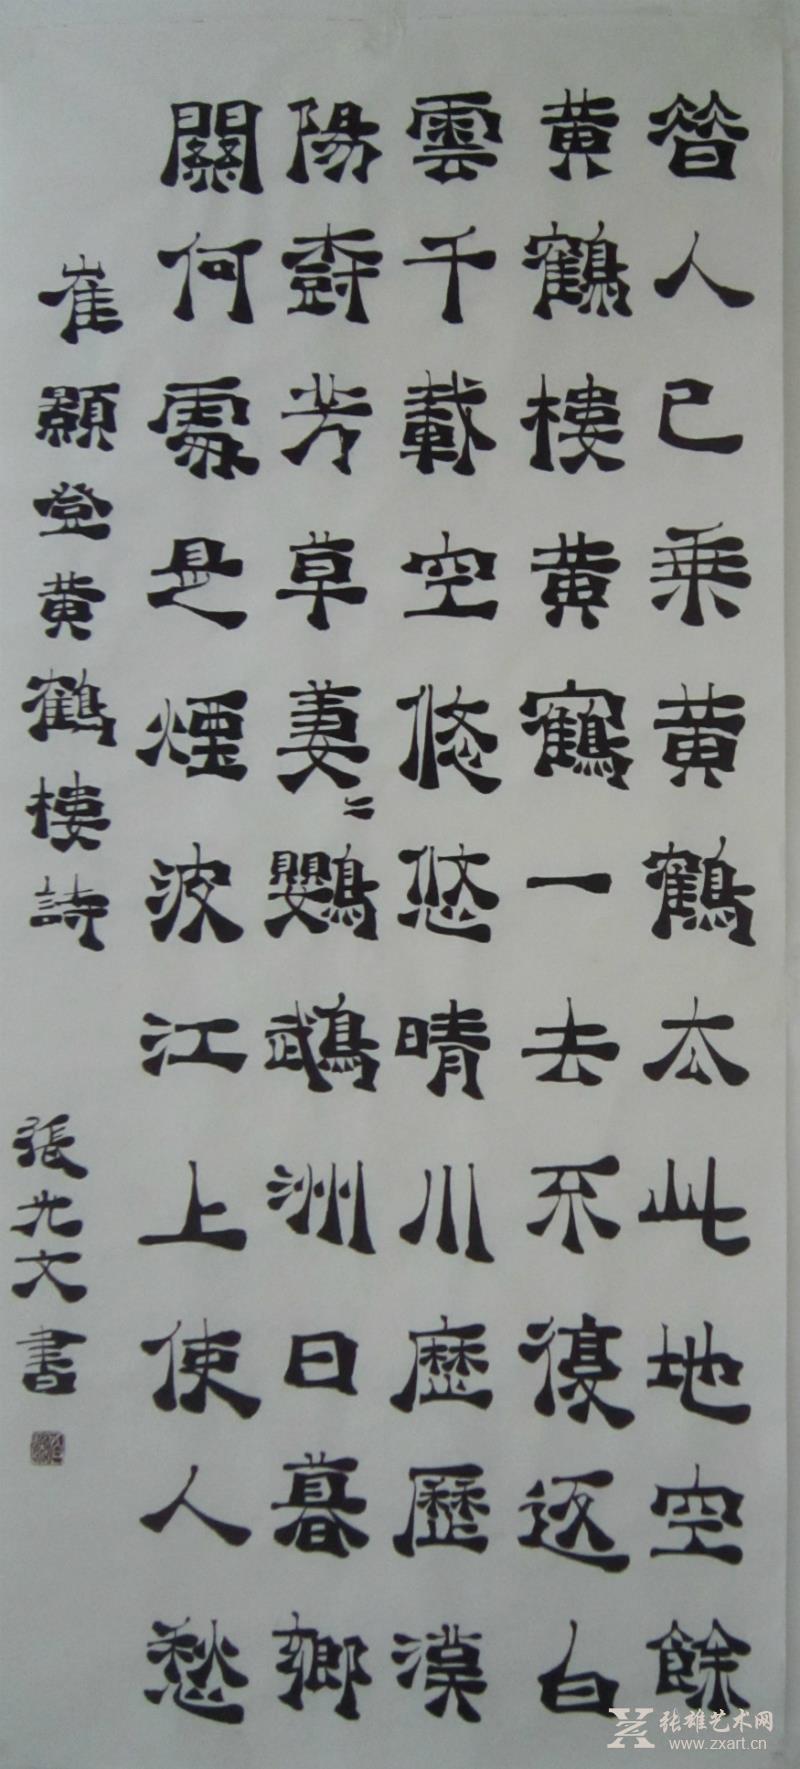 昔人已乘黄鶴去此地空餘
黄鶴樓黄鶴一去不復返白
雲千載空悠悠晴川歷歷漢
陽樹芳草萋〻鸚鵡洲日暮鄉
關何處是煙波江上使人愁
崔顥登黄鶴樓詩
張光文書
张雄艺术网
www.zxart.cn